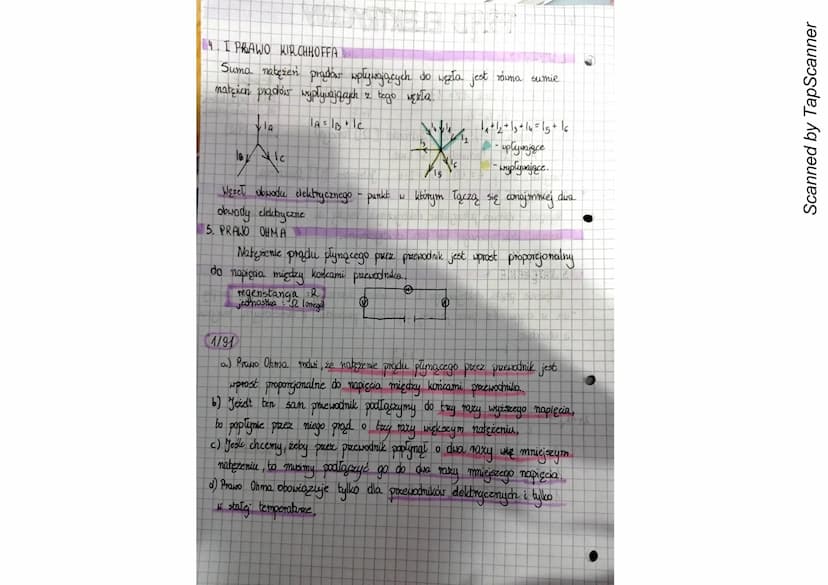 4. I PRAWO KIRCHHOFFA
Suma natężeń prądów wpływających do węzła jest równa sumie
natężeń prądów wypływających z tego węzła.
IA
IA = IB + IC
I1 + I2 + I3 + I4 = I5 + I6
- wpływające
- wypływające.
IB
IC
I2
I3
I5
I6
Węzeł obwodu elektrycznego - punkt w którym łączą się conajmniej dwa
obwody elektryczne
5. PRAWO OHMA
Natężenie prądu płynącego przez przewodnik jest wprost proporcjonalny
do napięcia między końcami przewodnika.
regenstanga : R
jednostka : Ω (omega)
1/91
a) Prawo Ohma mówi, że natężenie prądu płynącego przez przewodnik jest
wprost proporcjonalne do napięcia między końcami przewodnika.
b) Jeżeli ten sam przewodnik podłączymy do trzy razy wyższego napięcia,
to popłynie przez niego prąd o trzy razy większym natężeniu.
c) Jeśli chcemy, żeby przez przewodnik popłynął o dwa razy mniejszym
natężeniu, to musimy podłączyć go do dwa razy mniejszego napięcia.
d) Prawo Ohma obowiązuje tylko dla przewodników elektrycznych i tylko
w stałej temperaturze.
Scanned by TapScanner